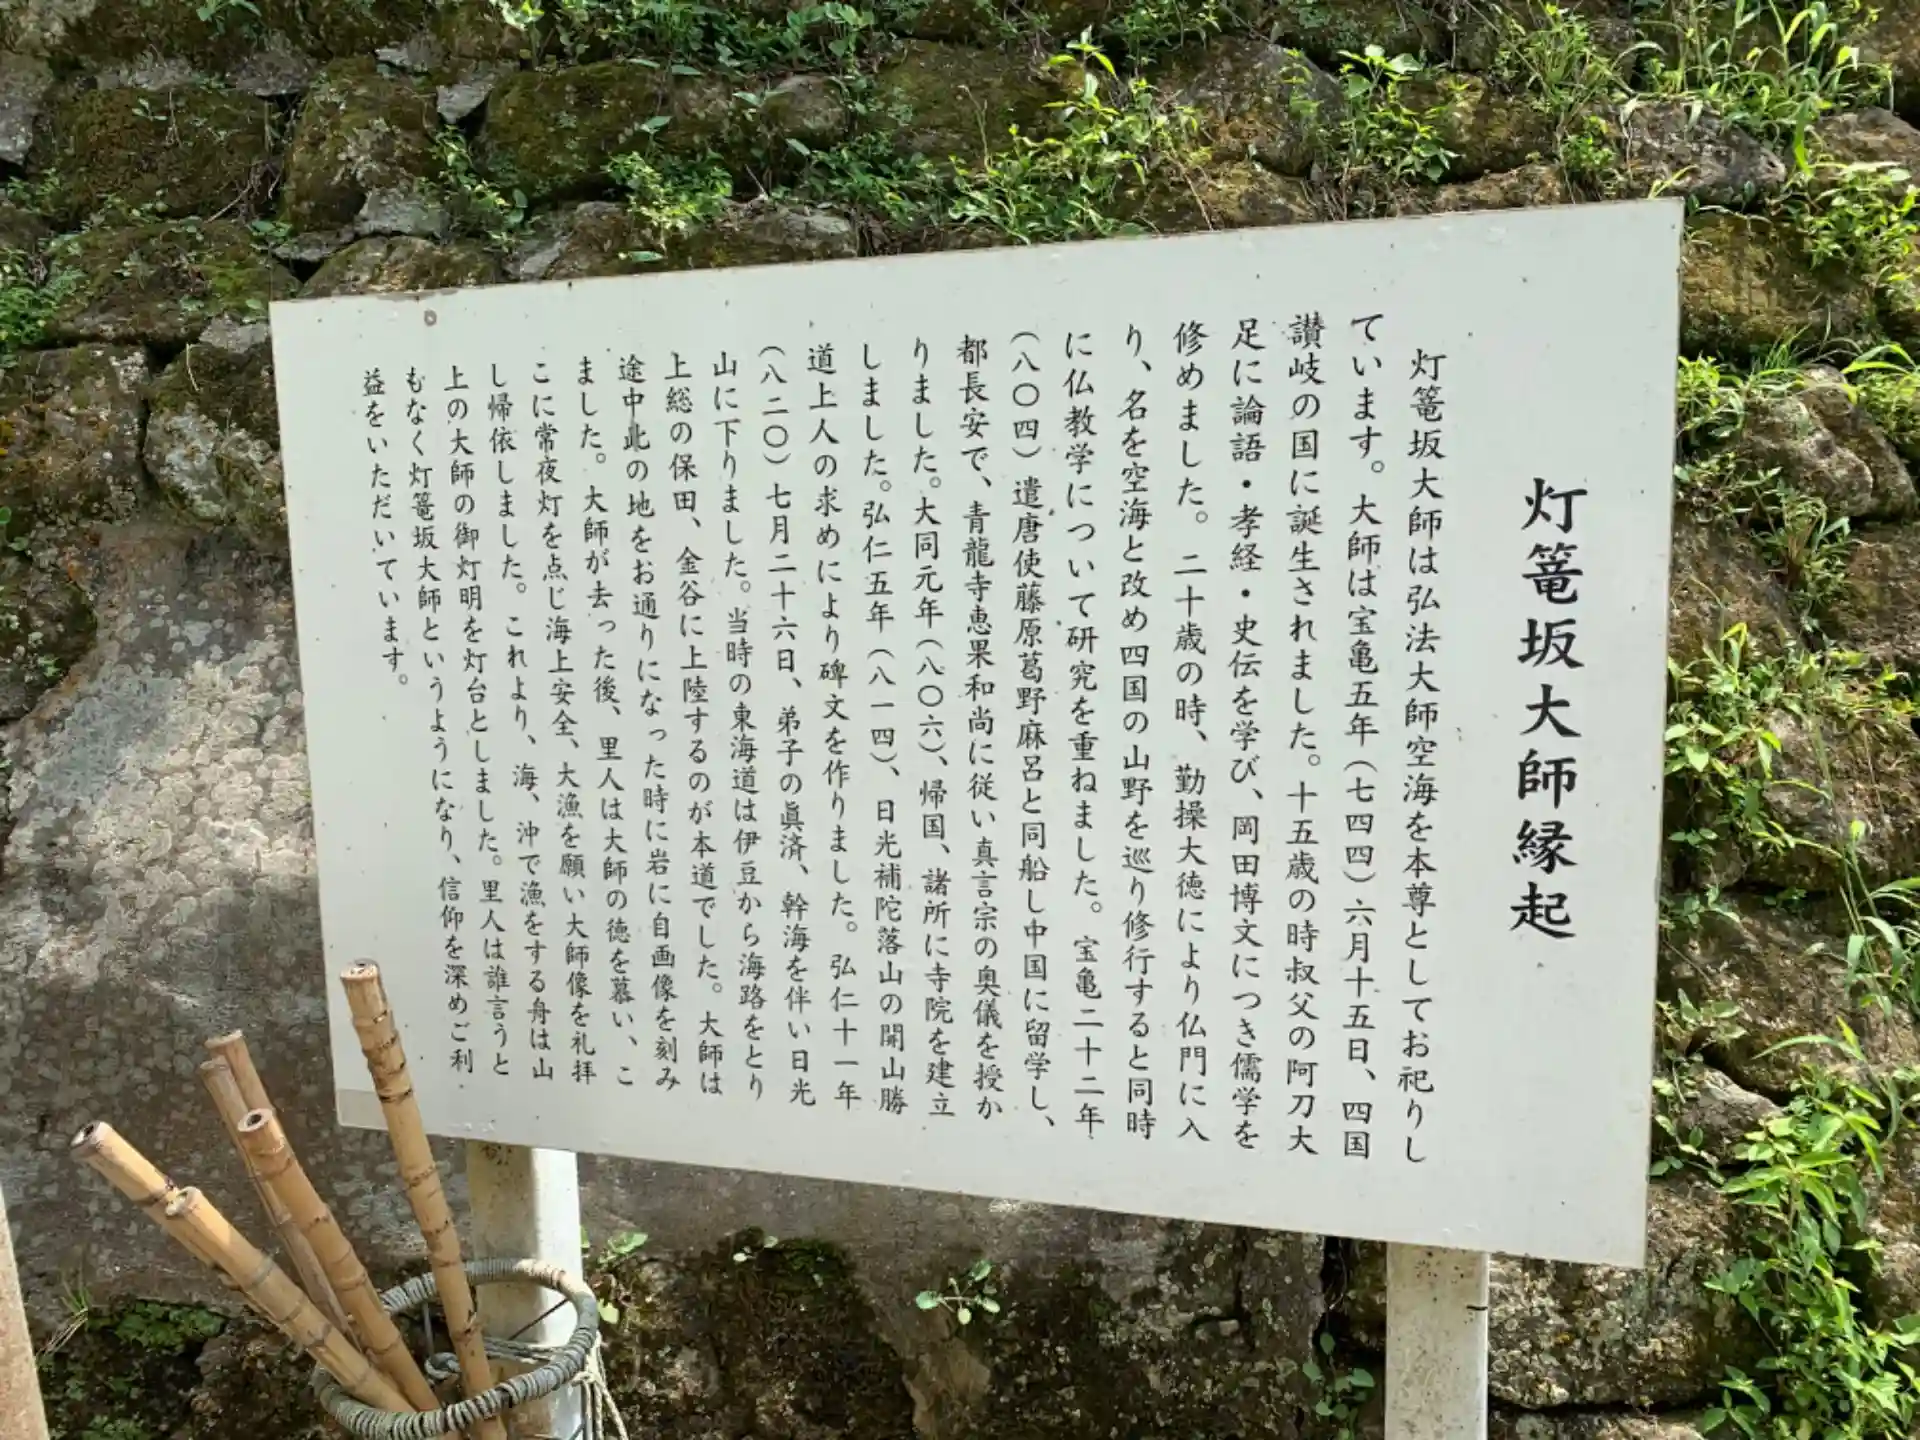 灯篭坂大師縁起
灯篭坂大師は弘法大師空海を本尊としてお祀りし
ています。大師は宝亀五年（七四四）六月十五日、四国
讃岐の国に誕生されました。十五歳の時叔父の阿刀大
足に論語・孝経・史伝を学び、岡田博文につき儒学を
修めました。二十歳の時、勤操大徳により仏門に入
り、名を空海と改め四国の山野を巡り修行すると同時
に仏教学について研究を重ねました。宝亀二十二年
（八〇四）遣唐使藤原葛野麻呂と同船し中国に留学し、
都長安で、青龍寺恵果和尚に従い真言宗の奥儀を授か
りました。大同元年（八〇六）、帰国、諸所に寺院を建立
しました。弘仁五年（八一四）、日光補陀落山の開山勝
道上人の求めにより碑文を作りました。弘仁十一年
（八二〇）七月二十六日、弟子の眞済、幹海を伴い日光
山に下りました。当時の東海道は伊豆から海路をとり
上総の保田、金谷に上陸するのが本道でした。大師は
途中此の地をお通りになった時に岩に自画像を刻み
ました。大師が去った後、里人は大師の徳を慕い、こ
こに常夜灯を点じ海上安全、大漁を願い大師像を礼拝
し帰依しました。これより、海、沖で漁をする舟は山
上の大師の御灯明を灯台としました。里人は誰言うと
もなく灯篭坂大師というようになり、信仰を深めご利
益をいただいています。